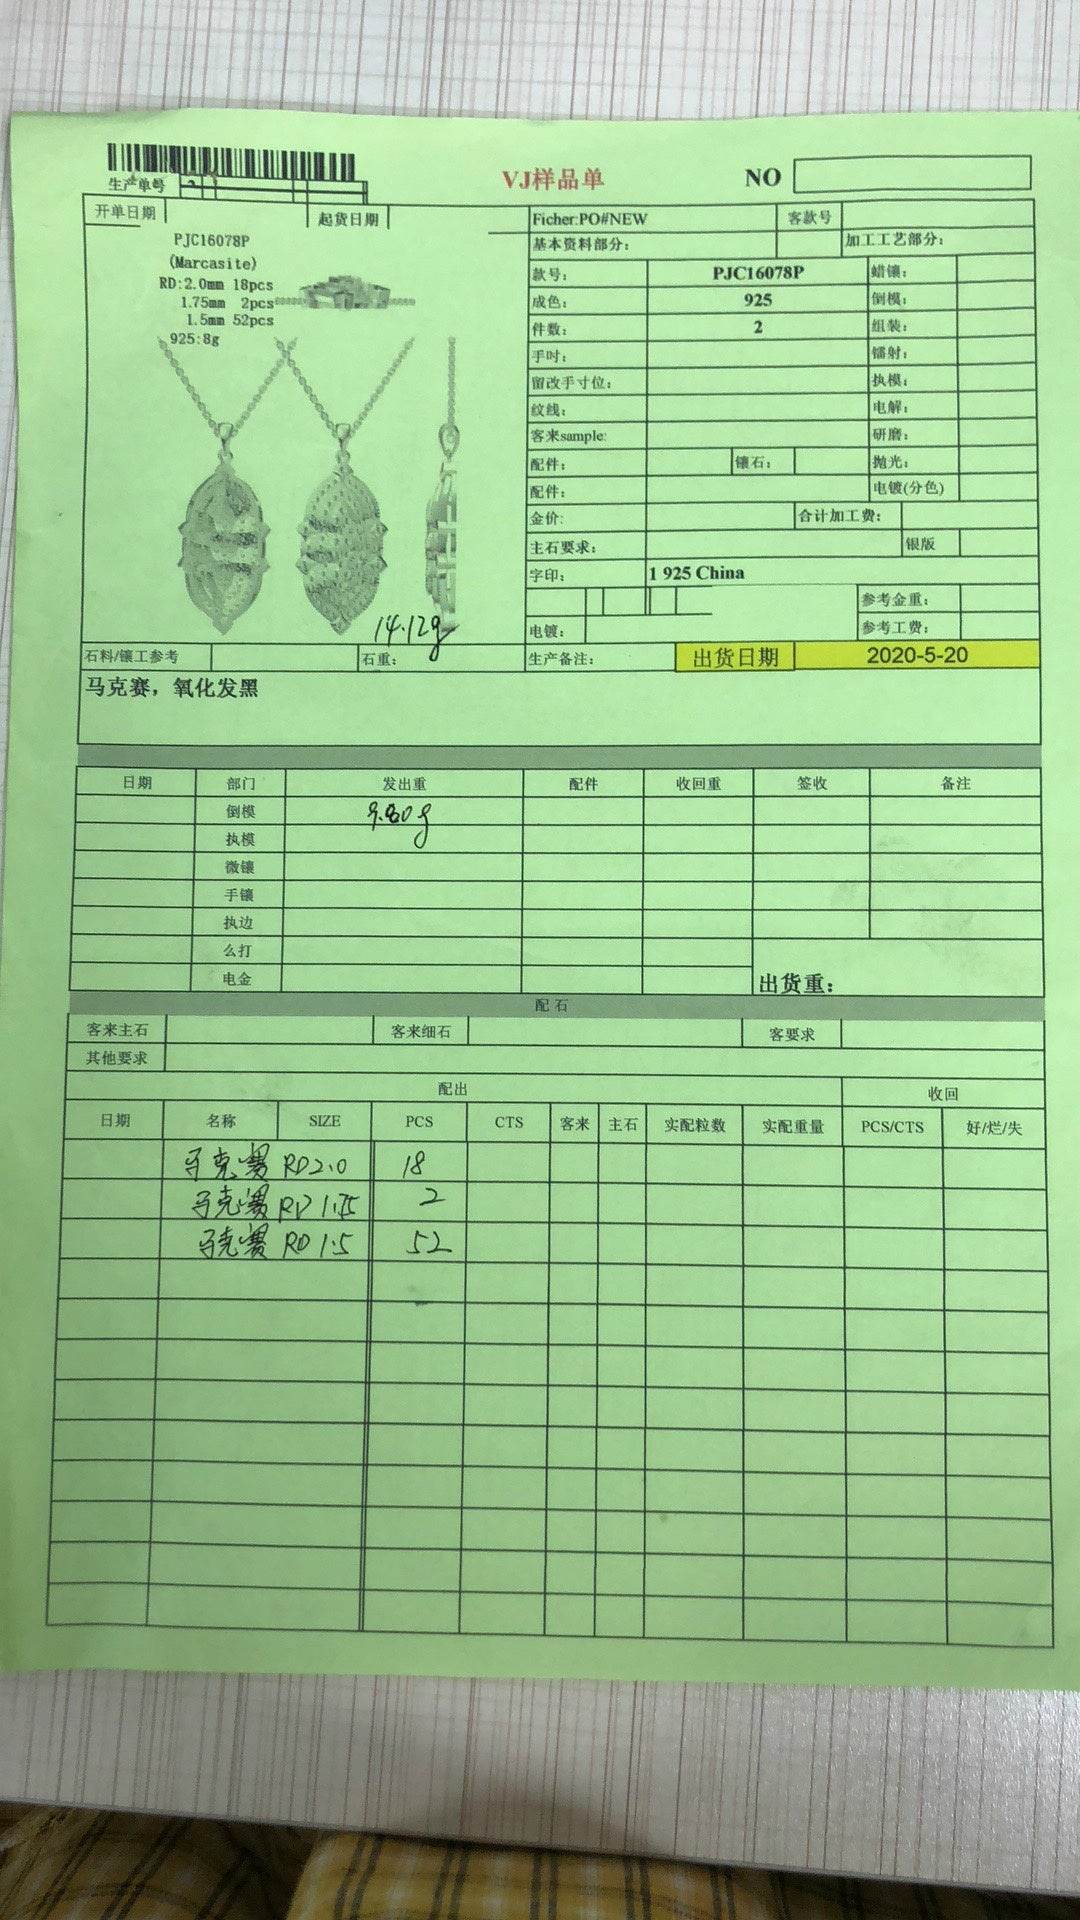 生产单号
VJ样品单 NO
开单日期 起货日期 Ficher:PO#NEW 客款号
PJC16078P 基本资料部分： 加工工艺部分：
(Marcasite) 款号： PJC16078P 蜡镶：
RD:2.0mm 18pcs 成色： 925 倒模：
1.75mm 2pcs
1.5mm 52pcs 件数： 2 组装：
925:8g 手吋： 镭射：
留改手寸位： 执模：
纹线： 电解：
客来sample: 研磨：
配件： 镶石： 抛光：
配件： 电镀(分色)
金价: 合计加工费：
主石要求： 银版
字印： 1 925 China
参考金重：
14.12g 电镀： 参考工费：
石料/镶工参考 石重： 生产备注： 出货日期 2020-5-20
马克赛，氧化发黑
日期 部门 发出重 配件 收回重 签收 备注
倒模
执模
微镶
手镶
执边
么打
电金 出货重：
配石
客来主石 客来细石 客要求
其他要求
配出 收回
日期 名称 SIZE PCS CTS 客来 主石 实配粒数 实配重量 PCS/CTS 好/烂/失
马克赛 RD2.0 18
马克赛 RD 1.75 2
马克赛 RD 1.5 52